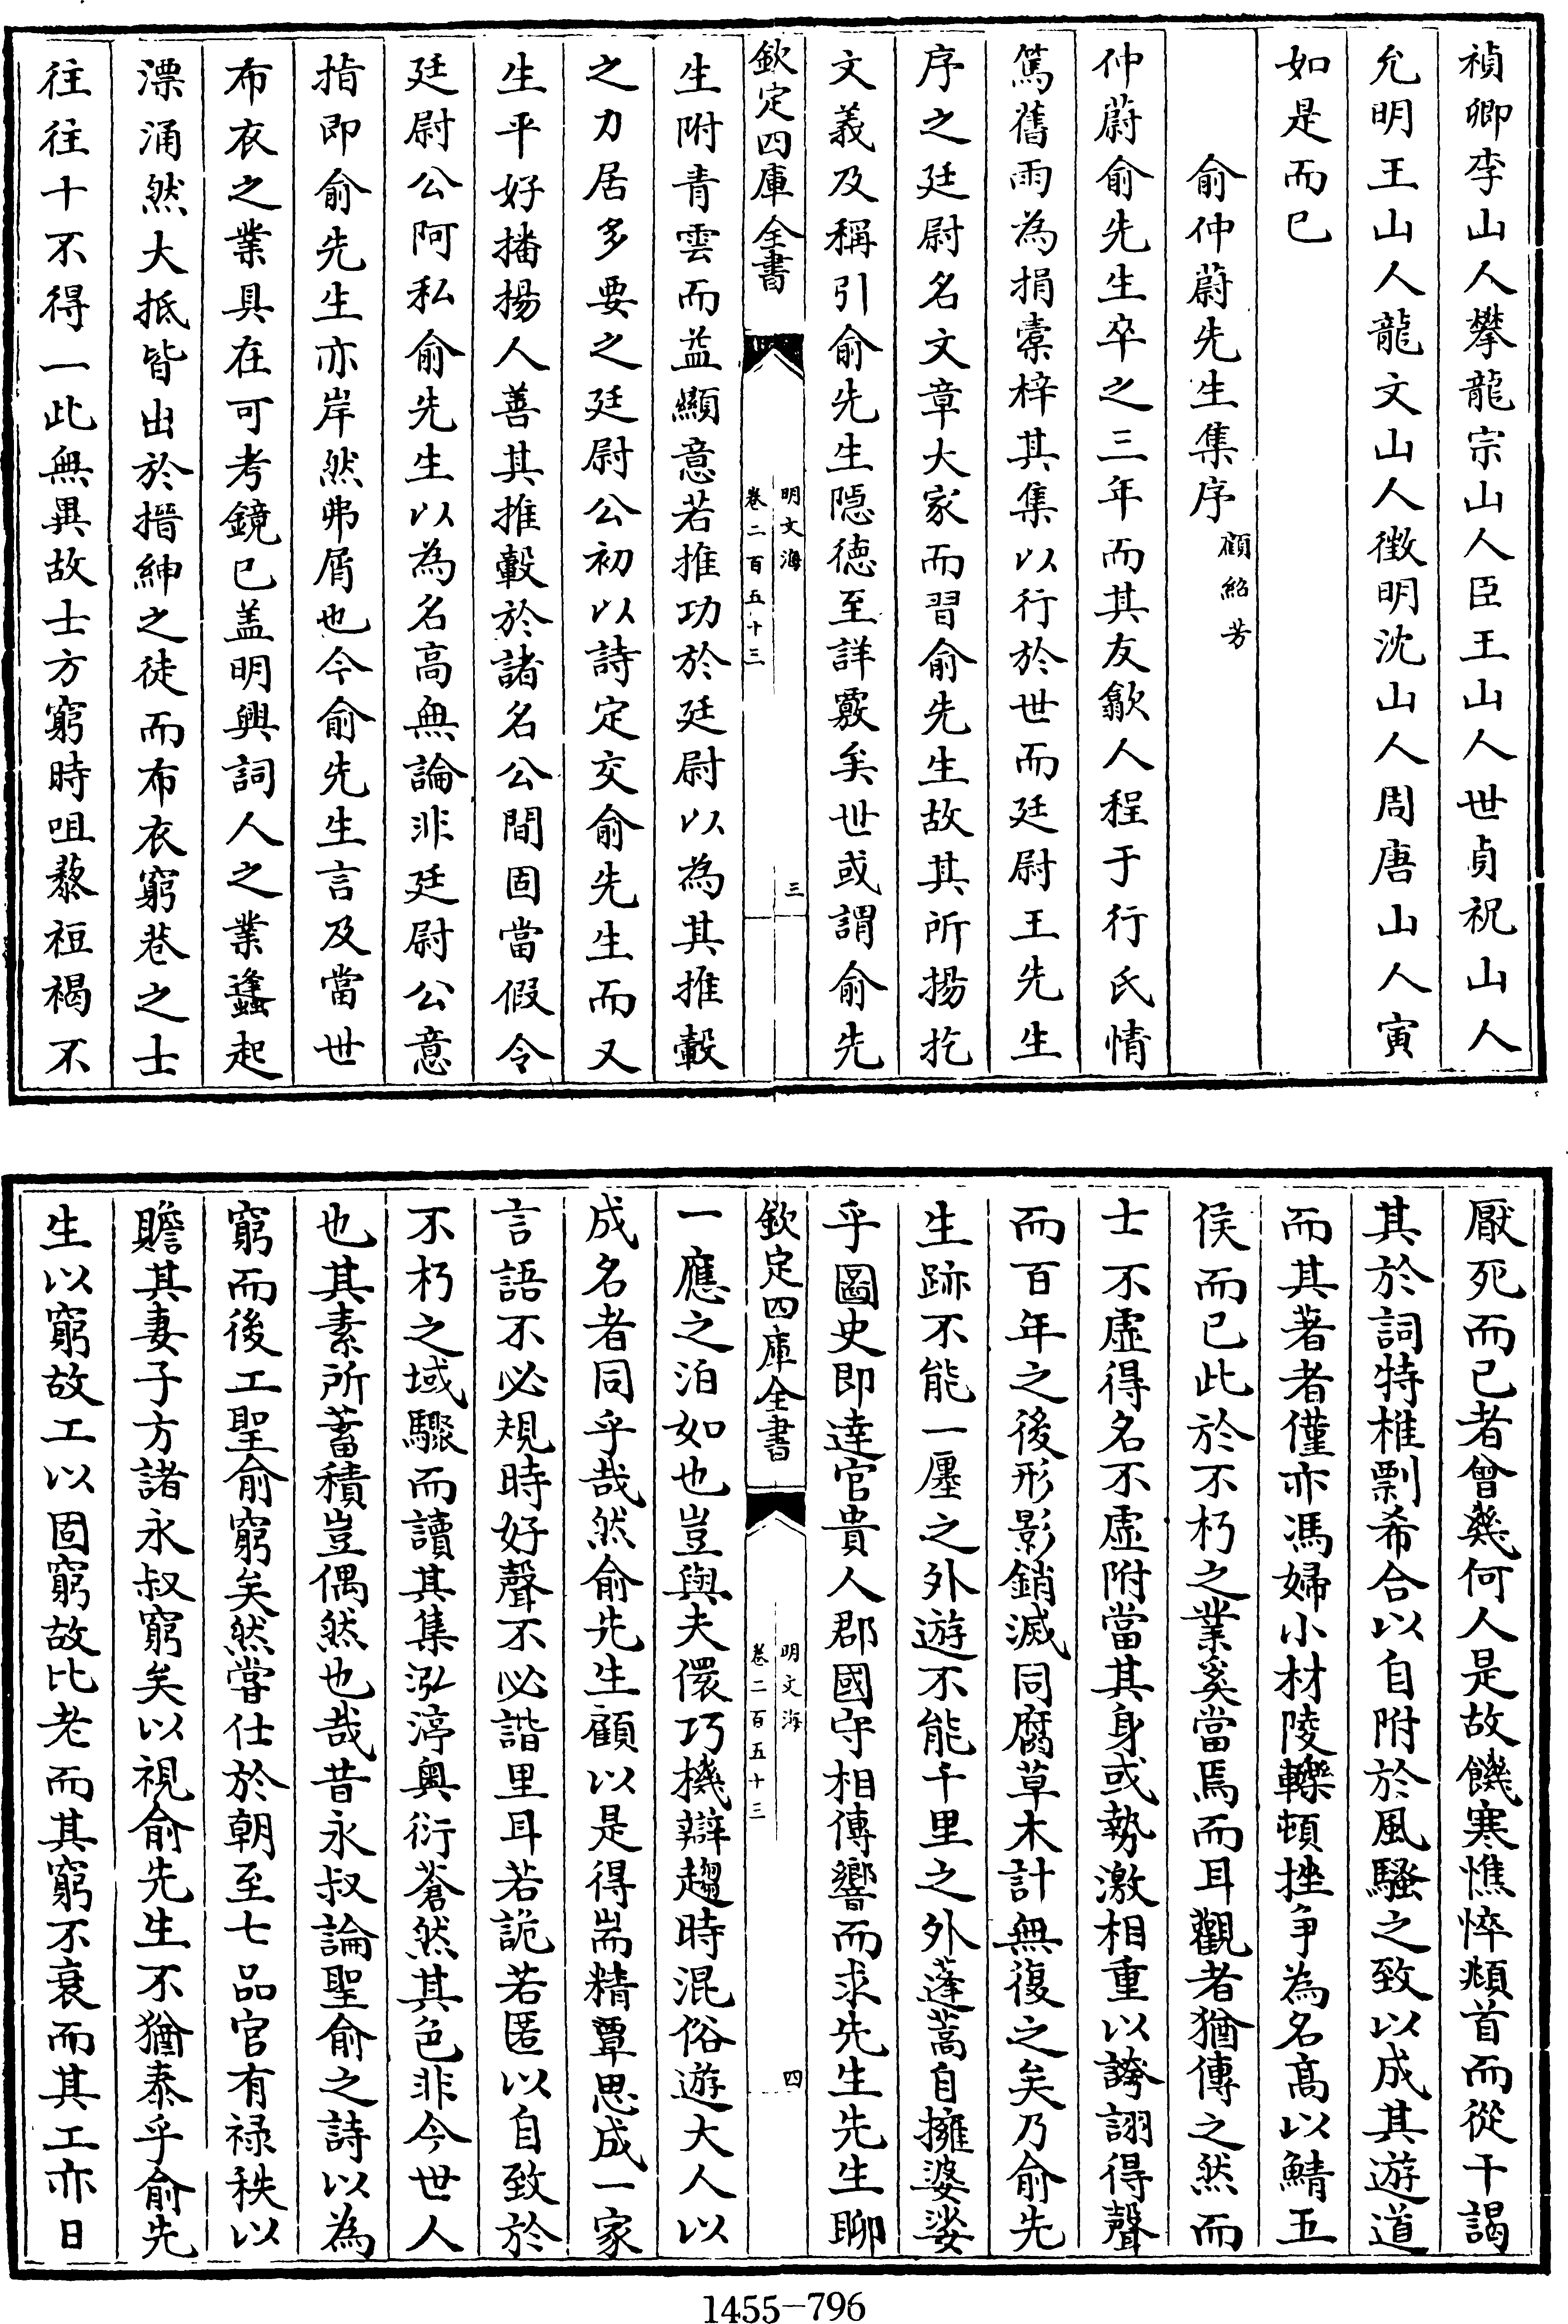 禎卿李山人攀龍宗山人臣王山人世貞祝山人
允明王山人龍文山人徵明沈山人周唐山人寅
如是而已
俞仲蔚先生集序 顧紹芳
仲蔚俞先生卒之三年而其友歙人程于行氏情
篤舊雨為捐橐梓其集以行於世而廷尉王先生
序之廷尉名文章大家而習俞先生故其所揚扢
文義及稱引俞先生隱德至詳覈矣世或謂俞先
欽定四庫全書
明文海
卷二百五十三
三
生附青雲而益顯意若推功於廷尉以為其推轂
之力居多要之廷尉公初以詩定交俞先生而又
生平好播揚人善其推轂於諸名公間固當假令
廷尉公阿私俞先生以為名高無論非廷尉公意
指即俞先生亦岸然弗屑也今俞先生言及當世
布衣之業具在可考鏡已盖明興詞人之業蠭起
漂涌然大抵皆出於搢紳之徒而布衣窮巷之士
往往十不得一此無異故士方窮時咀藜袒褐不
厭死而已者曾幾何人是故饑寒憔悴頫首而從干謁
其於詞特椎剽希合以自附於風騷之致以成其遊道
而其著者僅亦馮婦小材陵轢頓挫爭為名高以鯖五
侯而已此於不朽之業奚當焉而耳觀者猶傳之然而
士不虛得名不虛附當其身或勢激相重以誇詡得聲
而百年之後形影銷滅同腐草木計無復之矣乃俞先
生跡不能一廛之外遊不能千里之外蓬蒿自擁婆娑
乎圖史即達官貴人郡國守相傳響而求先生先生聊
欽定四庫全書
明文海
卷二百五十三
四
一應之泊如也豈與夫儇巧機辯趨時混俗遊大人以
成名者同乎哉然俞先生顧以是得耑精覃思成一家
言語不必規時好聲不必諧里耳若詭若匿以自致於
不朽之域驟而讀其集泓渟奧衍蒼然其色非今世人
也其素所蓄積豈偶然也哉昔永叔論聖俞之詩以為
窮而後工聖俞窮矣然嘗仕於朝至七品官有祿秩以
贍其妻子方諸永叔窮矣以視俞先生不猶泰乎俞先
生以窮故工以固窮故比老而其窮不衰而其工亦日
1455-796